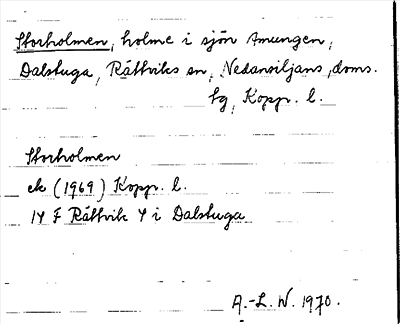 Storholmen, holme i sjön Amungen,
Dalstuga, Rättviks sn, Nedansiljans, doms.
tg, Kopp. l.
Storholmen
ek (1969) Kopp. l.
14 F Rättvik 4 i Dalstuga
A.-L. W. 1970.